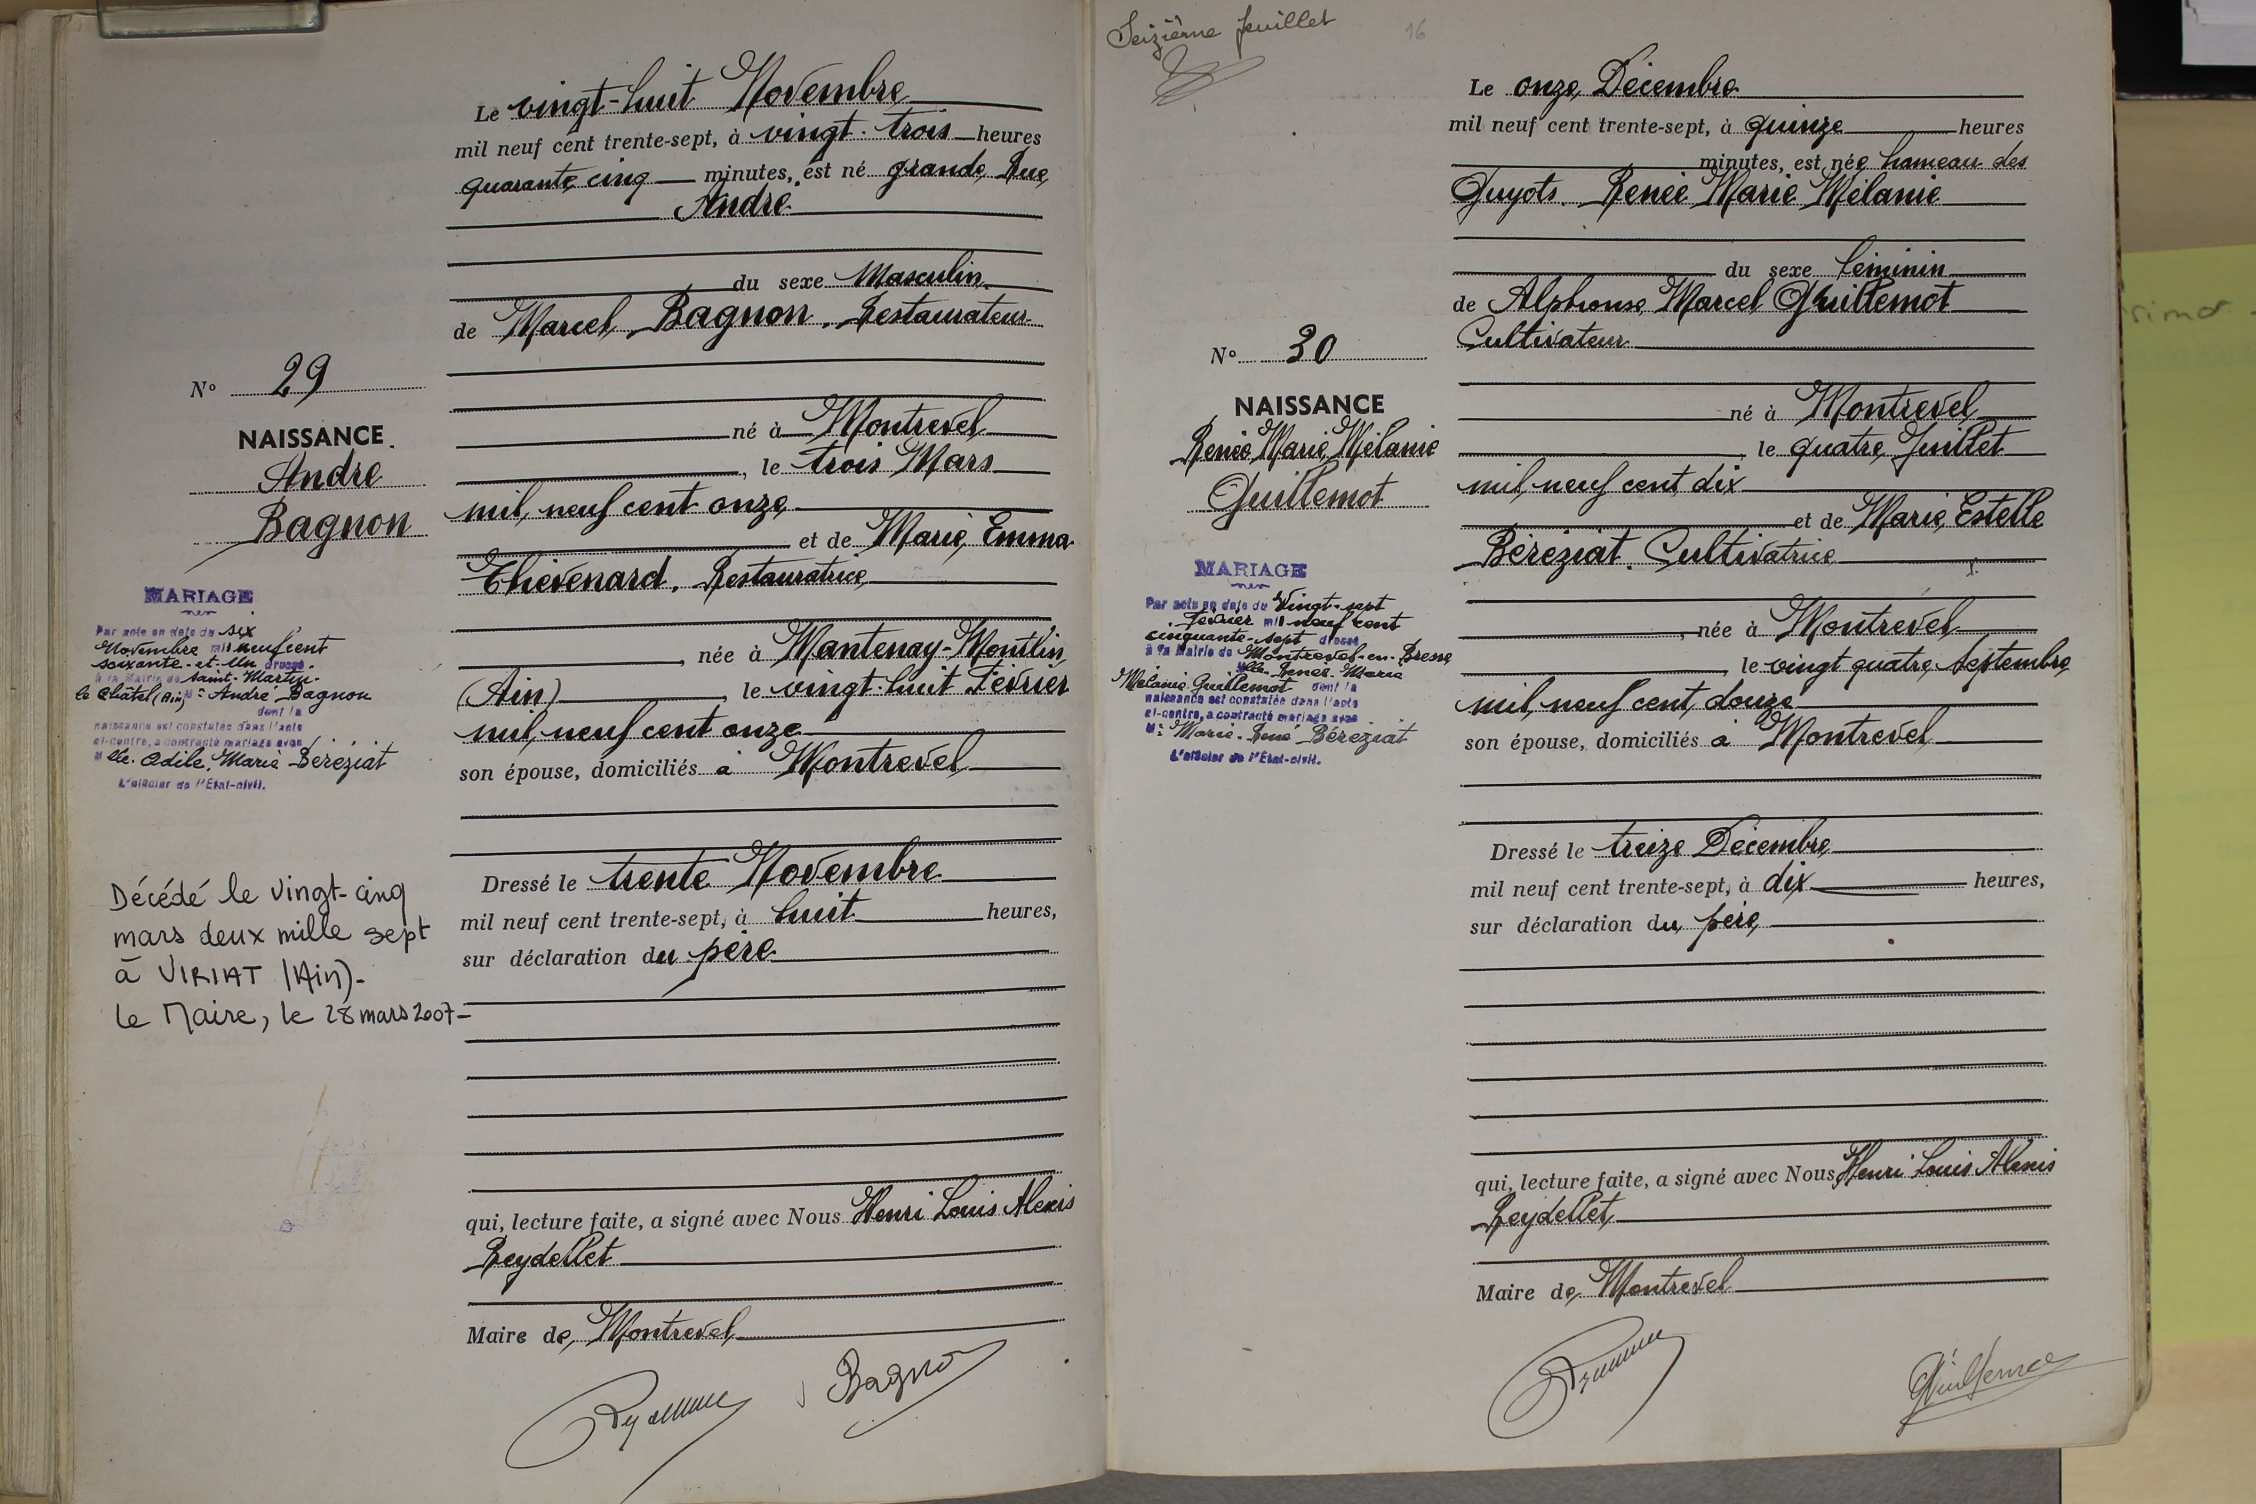 Le vingt-huit Novembre
mil neuf cent trente-sept, à vingt-trois heures
quarante cinq minutes, est né grande Rue
André
du sexe Masculin
de Marcel Bagnon, Restaurateur
né à Montrevel
, le trois Mars
mil neuf cent onze
et de Marie Emma
Thévenard, Restauratrice
, née à Mantenay-Montlin
(Ain), le vingt-huit Février
mil neuf cent onze
son épouse, domiciliés à Montrevel
Dressé le trente Novembre
mil neuf cent trente-sept, à huit heures,
sur déclaration du père
qui, lecture faite, a signé avec Nous Henri Louis Alexis
Reydellet
Maire de Montrevel
Bagnon
N° 29
NAISSANCE
André
Bagnon
MARIAGE
Par acte en date du six
Novembre mil neuf cent
soixante-et-un dressé
à la Mairie de Saint-Martin-
le Châtel (Ain) Mr André Bagnon
dont la
naissance est constatée dans l'acte
ci-contre, a contracté mariage avec
Mlle Odile Marie Béréziat
L'officier de l'État-civil.
Décédé le vingt-cinq
mars deux mille sept
à VIRIAT (Ain)-
Le Maire, le 28 mars 2007-
Seizième feuillet
16
Le onze Décembre
mil neuf cent trente-sept, à quinze heures
minutes, est née hameau des
Guyots Renée Marie Mélanie
du sexe féminin
de Alphonse Marcel Guillemot
Cultivateur
né à Montrevel
, le quatre Juillet
mil neuf cent dix
et de Marie Estelle
Béréziat, Cultivatrice
, née à Montrevel
, le vingt quatre Septembre
mil neuf cent douze
son épouse, domiciliés à Montrevel
Dressé le treize Décembre
mil neuf cent trente-sept, à dix heures,
sur déclaration du père
qui, lecture faite, a signé avec Nous Henri Louis Alexis
Reydellet
Maire de Montrevel
Guillemot
N° 30
NAISSANCE
Renée Marie Mélanie
Guillemot
MARIAGE
Par acte en date du Vingt-sept
février mil neuf cent
cinquante-sept dressé
à la Mairie de Montrevel-en-Bresse
Mlle Renée Marie
Mélanie Guillemot dont la
naissance est constatée dans l'acte
ci-contre, a contracté mariage avec
Mr Marie-René Béréziat
L'officier de l'État-civil.